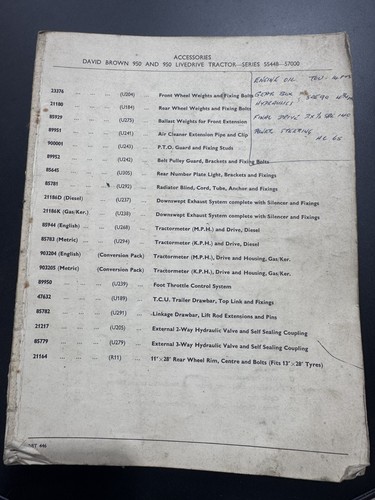 ACCESSORIES
DAVID BROWN 950 AND 950 LIVEDRIVE TRACTOR—SERIES 55448—57000
ENGINE OIL
23276 ... ... ... (U204) Front Wheel Weights and Fixing Bolts
GEAR BOX
21180 ... ... ... (U184) Rear Wheel Weights and Fixing Bolts
HYDRAULICS
85929 ... ... ... (U275) Ballast Weights for Front Extension
FINAL DRIVE
89951 ... ... ... (U241) Air Cleaner Extension Pipe and Clip
POWER STEERING
900001 ... ... ... (U243) P.T.O. Guard and Fixing Studs
89952 ... ... ... (U242) Belt Pulley Guard, Brackets and Fixing Bolts
85645 ... ... ... (U305) Rear Number Plate Light, Brackets and Fixings
85781 ... ... ... (U295) Radiator Blind, Cord, Tube, Anchor and Fixings
21186D (Diesel) ... ... (U237) Downswept Exhaust System complete with Silencer and Fixings
21186K (Gas/Ker.) ... ... (U238) Downswept Exhaust System complete with Silencer and Fixings
85944 (English) ... ... (U268) Tractormeter (M.P.H.) and Drive, Diesel
85783 (Metric) ... ... (U294) Tractormeter (K.P.H.) and Drive, Diesel
903204 (English) (Conversion Pack) Tractormeter (M.P.H.), Drive and Housing, Gas/Ker.
903205 (Metric) (Conversion Pack) Tractormeter (K.P.H.), Drive and Housing, Gas/Ker.
89950 ... ... ... (U239) Foot Throttle Control System
47632 ... ... ... (U189) T.C.U. Trailer Drawbar, Top Link and Fixings
85782 ... ... ... (U291) Linkage Drawbar, Lift Rod Extensions and Pins
21217 ... ... ... (U205) External 2-Way Hydraulic Valve and Self Sealing Coupling
85779 ... ... ... (U279) External 3-Way Hydraulic Valve and Self Sealing Coupling
21164 ... ... ... (R11) 11"×28" Rear Wheel Rim, Centre and Bolts (Fits 13"×28" Tyres)
446